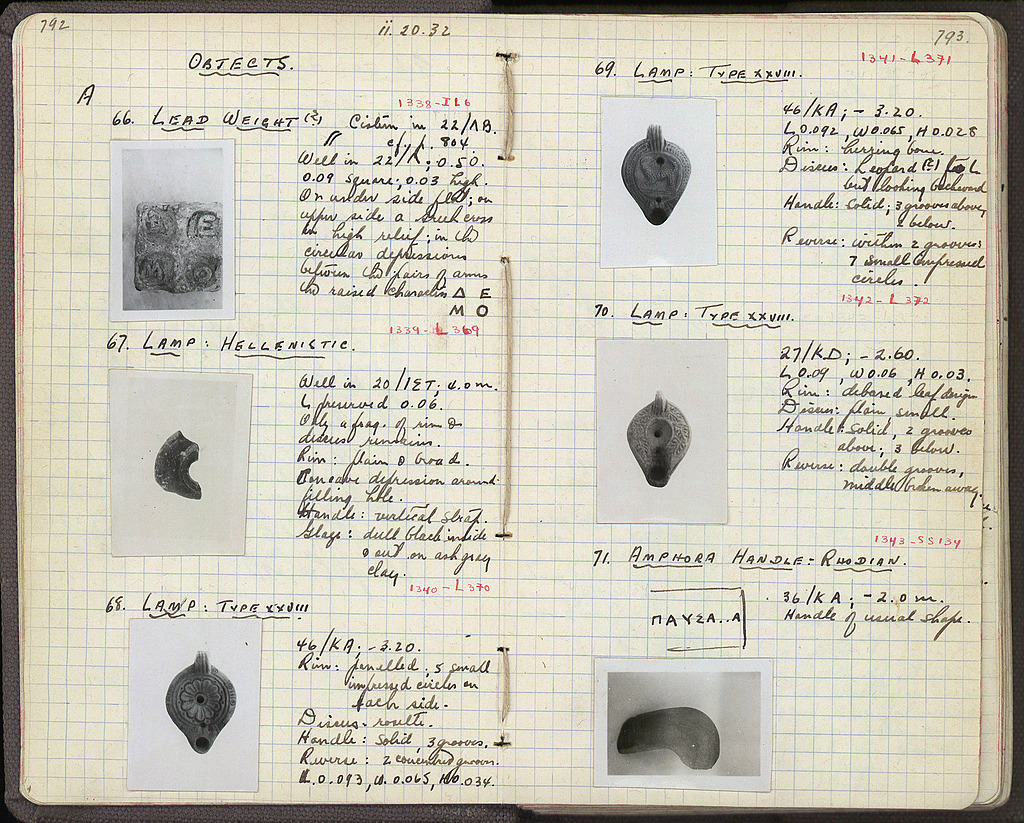 792
ii. 20. 32
OBJECTS.
A
1338-IL6
66. LEAD WEIGHT (?) Cistern in 22/ΛB.
" cf. p. 804.
Well in 22/Λ; 0.50.
0.09 square; 0.03 high.
On under side flat; on
upper side a Greek cross
in high relief; in the
circular depressions
between the pairs of arms
the raised characters Δ E
M O
1339-L 369
67. LAMP: HELLENISTIC.
Well in 20/ΙΣΤ; 4.0 m.
L preserved 0.06.
Only a frag. of rim &
discus remains.
Rim: plain & broad.
Concave depression around
filling hole.
Handle: vertical strap.
Glaze: dull black inside
& out on ash gray
clay.
1340-L370
68. LAMP: TYPE XXVIII
46/KA; -3.20.
Rim: panelled; 5 small
impressed circles on
each side.
Discus: rosette.
Handle: solid, 3 grooves.
Reverse: 2 concentric grooves.
L.0.093, W.0.065, H.0.034.
793.
1341-L371
69. LAMP: TYPE XXVIII.
46/KA; -3.20.
L 0.092, W 0.065, H 0.028
Rim: herring bone.
Discus: Leopard (?) to L
but looking backward
Handle: solid; 3 grooves above,
2 below.
Reverse: within 2 grooves:
7 small impressed
circles.
1342-L372
70. LAMP: TYPE XXVIII.
27/KD; -2.60.
L 0.09, W 0.06, H 0.03.
Rim: debased leaf design
Discus: plain small.
Handle: solid, 2 grooves
above, 3 below.
Reverse: double grooves,
middle broken away.
1343-SS134
71. AMPHORA HANDLE: RHODIAN.
ΠΑΥΣΑ..Α
36/KA; -2.0 m.
Handle of usual shape.